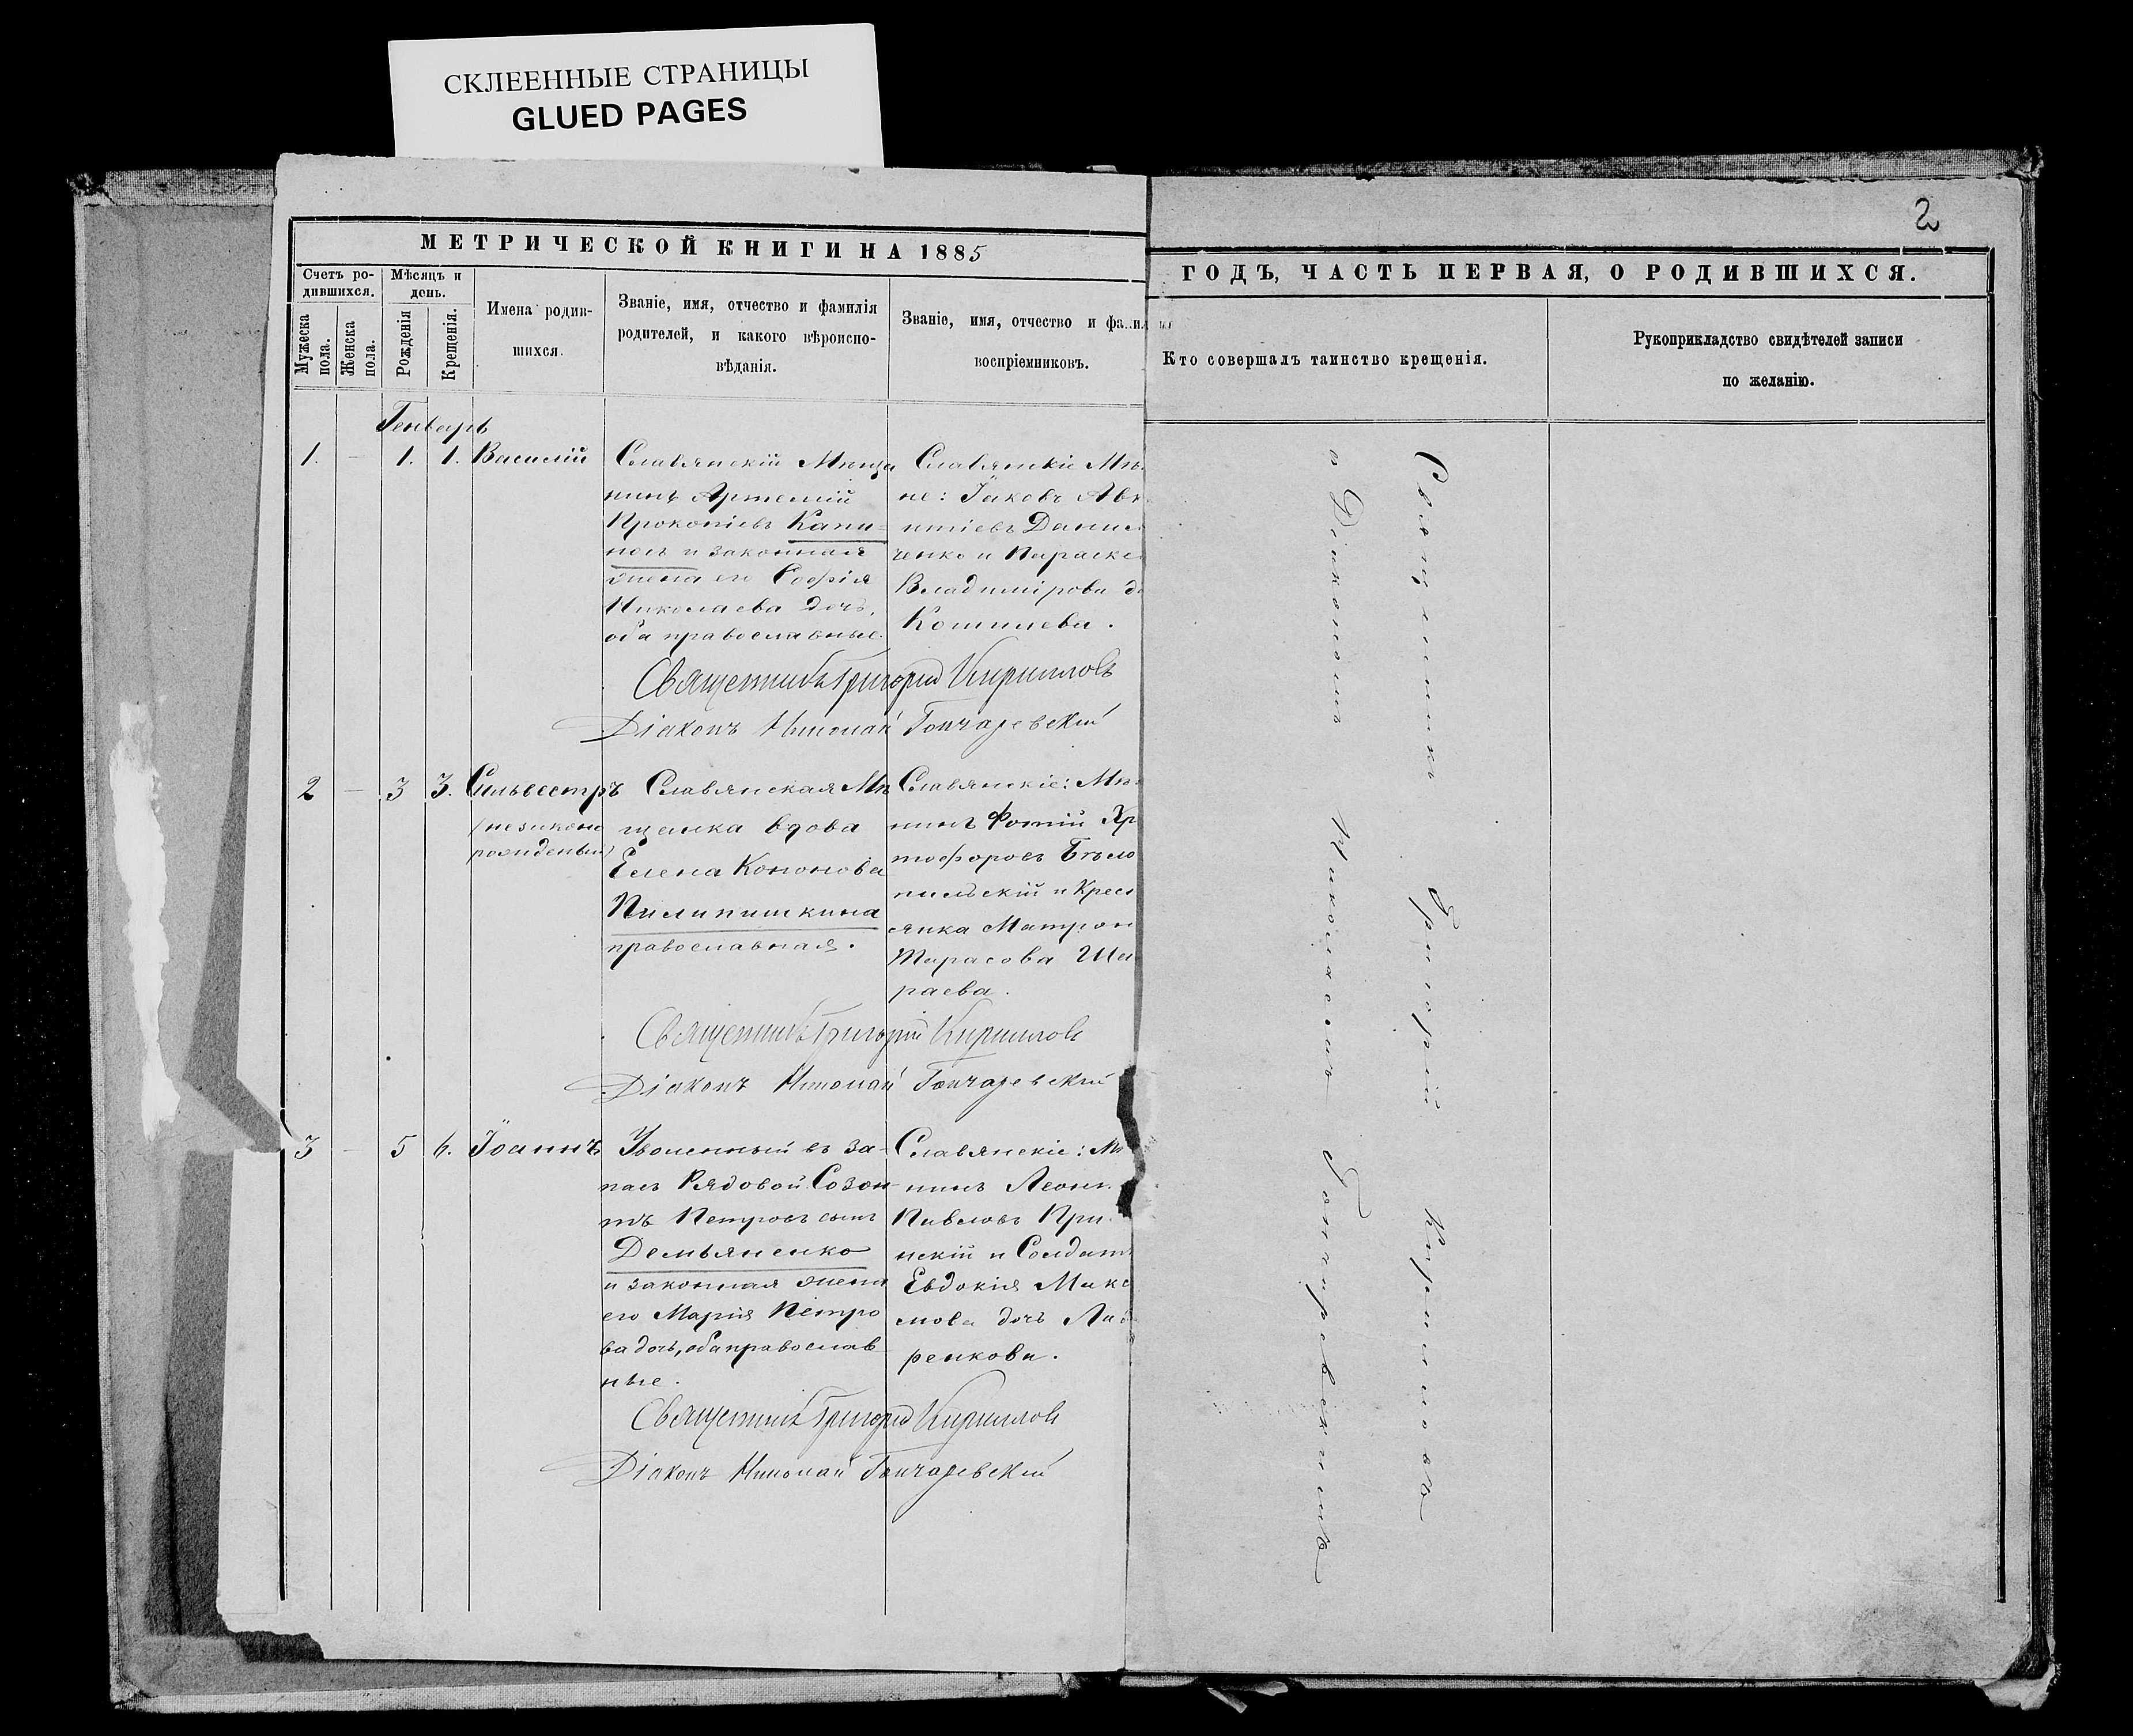 СКЛЕЕННЫЕ СТРАНИЦЫ
GLUED PAGES
2
МЕТРИЧЕСКОЙ КНИГИ НА 1885
ГОДЪ, ЧАСТЬ ПЕРВАЯ, О РОДИВШИХСЯ.
Счетъ ро-
дившихся.
Мужеска
пола.
Женска
пола.
Мѣсяцъ и
день.
Рожденія
Крещенія.
Имена родив-
шихся.
Званіе, имя, отчество и фамилія
родителей, и какого вѣроиспо-
вѣданія.
Званіе, имя, отчество и
воспріемниковъ.
Кто совершалъ таинство крещенія.
Рукоприкладство свидѣтелей записи
по желанію.
Генварь
1. - 1. 1. Василій
Славянскій Мѣща
нинъ Артемій
Прокопіевъ Капи-
носъ и законная
жена его Софія
Николаева дочь,
оба православные.
Славянскіе Мѣ
не: Іаковъ Авк
нтіевъ Данил
ченко и Параске
Владимірова д
Кошилева.
Священникъ Григорій Кирилловъ
Діаконъ Николай Гончаревскій
2 - 3 3. Сильвестръ
(незаконо
рожденый)
Славянская Мѣ
щанка вдова
Елена Кононова
Пилипишкина
православная.
Славянскіе: Мѣ
нинъ Фотій Хр
тофоровъ Бѣло
пильскій и Крест
янка Матрон
Тарасова Ша
раева.
Священникъ Григорій Кирилловъ
Діаконъ Николай Гончаревскій
3 - 5 6. Іоаннъ
Уволенный въ за-
пасъ Рядовой Созон-
тъ Петровъ сынъ
Демьяненко
и законная жена
его Марія Петро
ва дочь, оба православ
ные.
Славянскіе: Мѣ
нинъ Леон
Павловъ При
нскій и Солдат
Евдокія Макс
мова дочь Лав
ренкова.
Священникъ Григорій Кирилловъ
Діаконъ Николай Гончаревскій
Священникъ Григорій Кирилловъ
с Діакономъ Николаемъ Гончаревскимъ